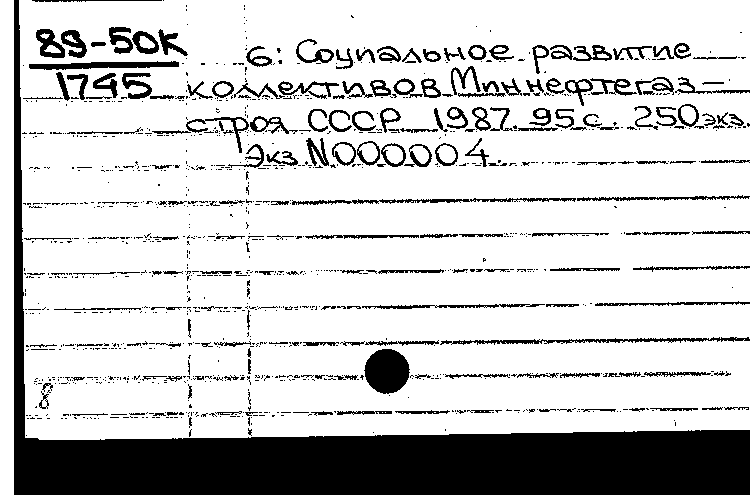 89-50К
1745
6: Социальное развитие
коллективов Миннефтегаз-
строя СССР 1987. 95 с. 250 экз.
Экз. N000004.
8